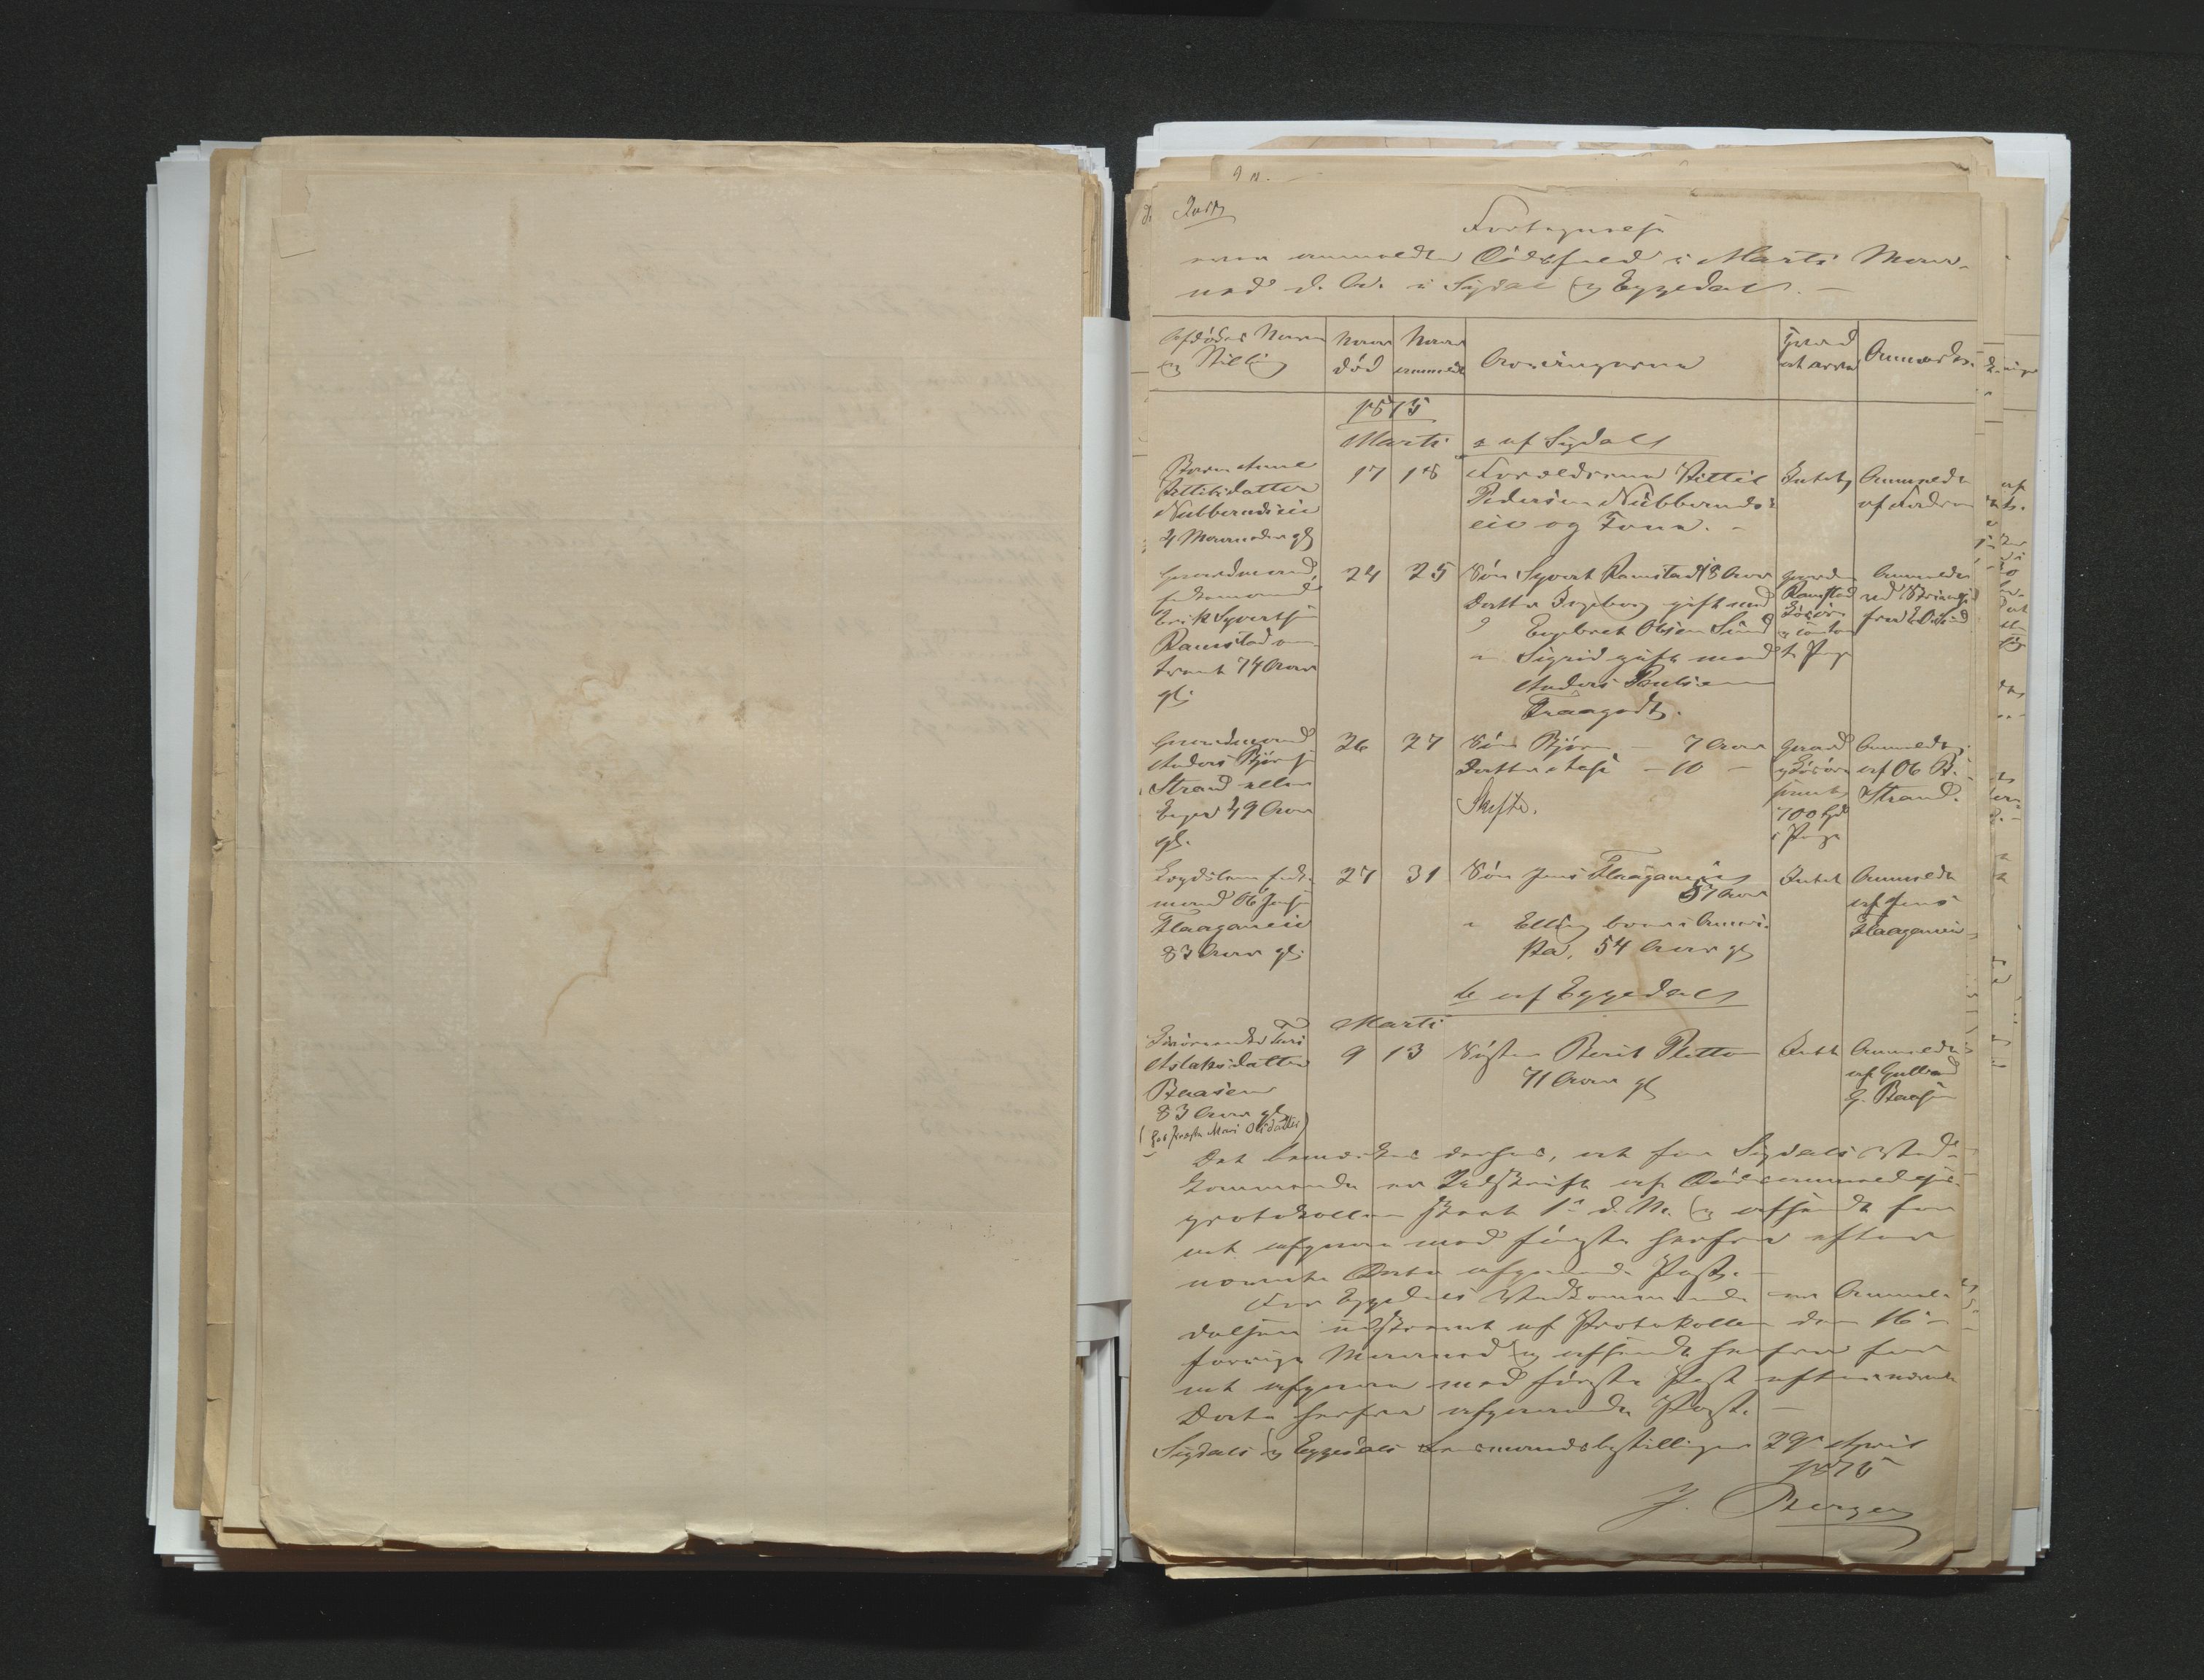 Fortegnelse
over anmeldte Dødsfald i Marts Maa-
ned d. A. i Sigdal og Eggedal. —
Afdødes Navn
og Stilling
Naar
død
Naar
anmeldt
Arvingerne
Hvad
at arve
Anmærkn.
1875
Marts
a af Sigdal
Barn Anne
Kittilsdatter
Nubberudseie
4 Maaneder gl
17
18
Forældrene Kittil
Pedersen Nubberuds-
eie og Kone. -
Intet
Anmeldt
af Faderen
Gaardmand
Enkemand
Erik Syvertsen
Ramstad om-
trent 74 Aar
gl.
24
25
Søn Syvert Ramstad
Datter Ingeborg gift med
Engebret Olsen Lund
" Sigrid gift med
Anders Paulsen
Kraagodt.
Gaarden
Ramstad
Løsøre
Anmeldt
Gaardmand
Anders Bjørnsen
Strand eller
Enger 49 Aar
gl.
26
27
Søn Bjørn — 7 Aar
Datter Aase — 10 —
Skifte.
Gaard
og Løsøre
samt
700 Spd
i Penge
Anmeldt
af Ole B.
Strand.
Lægdslem Enke-
mand Ole Jensen
Flaaganeie
83 Aar gl.
27
31
Søn Jens Flaaganeie
57 Aar
" Elling bor i Ameri-
ka, 54 Aar gl
Intet
Anmeldt
af Jens
Flaaganeie
b af Eggedal
Marts
Aslaksdatter
Braaten
83 Aar gl
(Mari Olsdatter)
9
13
Søster Berit Pletten
71 Aar gl
Intet
Anmeldt
af Gulbrand
G. Braaten
Det bemærkes derhos, at for Sigdals Ved-
kommende er Udskrift af Dødsanmeldelses-
protokollen skeet 1ste d. M. og afsendt for
at afgaa med første herfra efter
nævnte Dato afgaaende Post. —
For Eggedals Vedkommende er Anmel-
delsen udskrevet af Protokollen den 16de
forrige Maaned og afsendt herfra for
at afgaa med første Post efter nævnte
Dato herfra afgaaende Post. —
Sigdals og Eggedals Lensmandsbestilling 29de April
1875